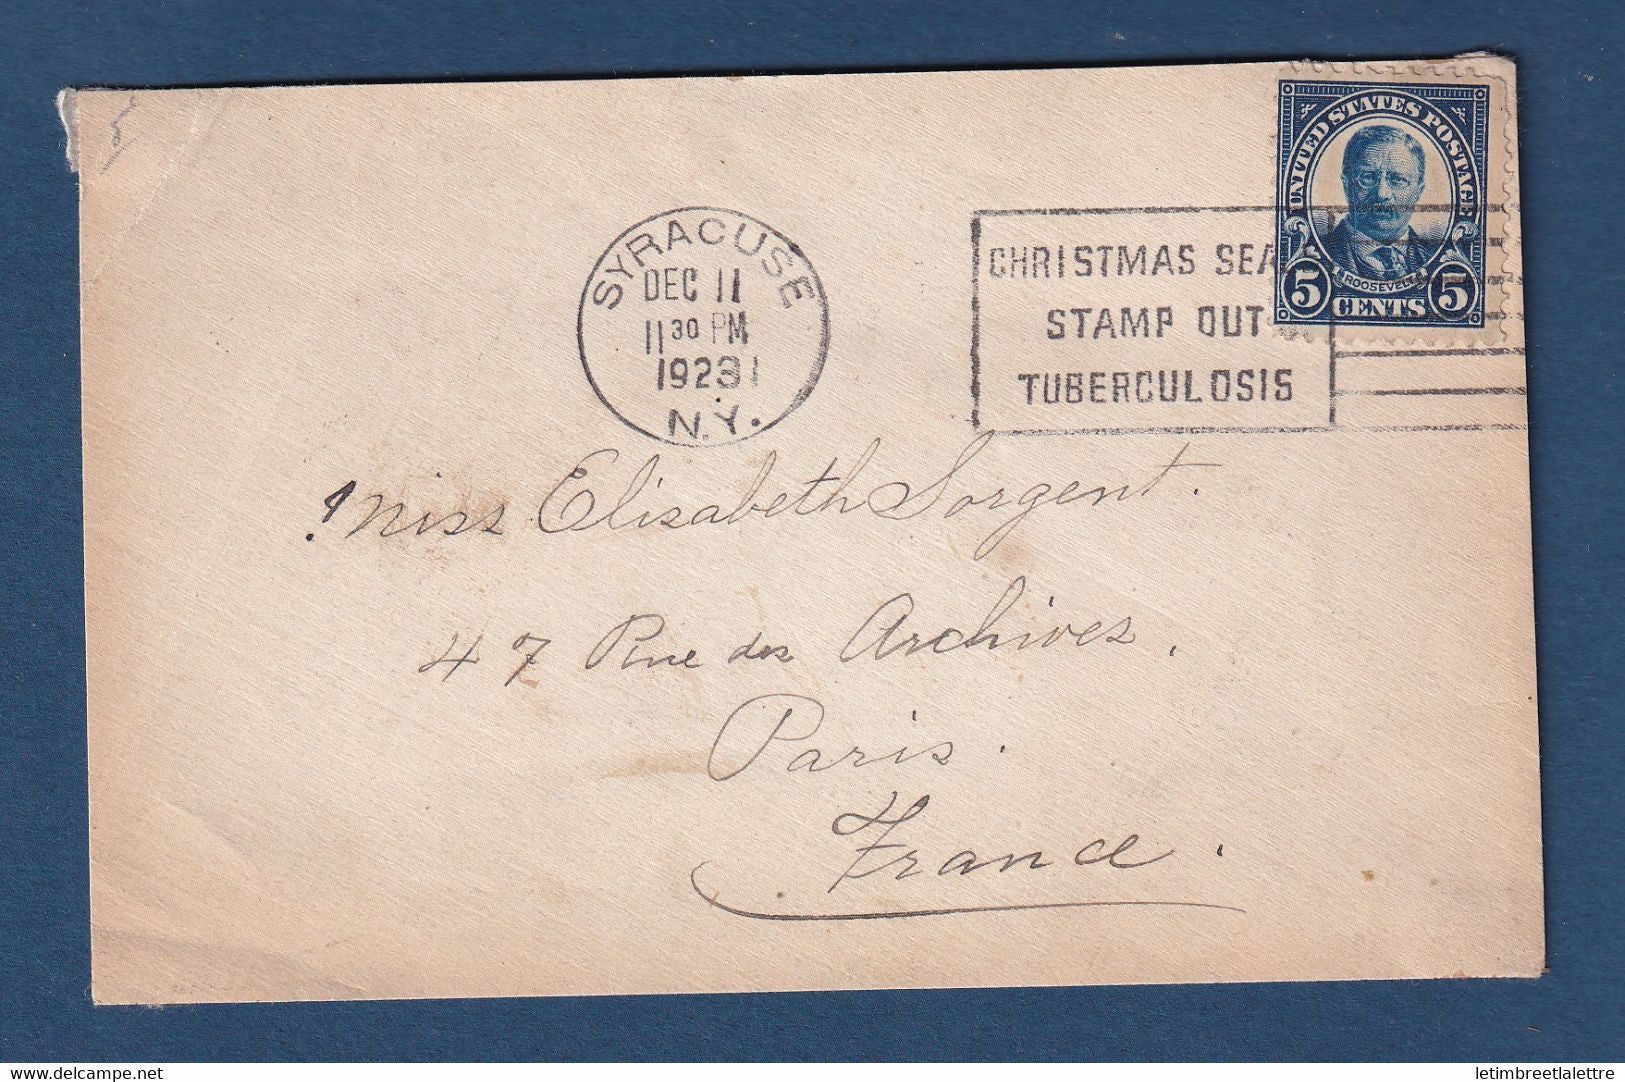 5
UNITED STATES POSTAGE
ROOSEVELT
5 CENTS 5
SYRACUSE
DEC 11
11 30 PM
1923
N.Y.
CHRISTMAS SEA
STAMP OUT
TUBERCULOSIS
Miss Elizabeth Sorgent.
47 Rue des Archives.
Paris.
France.
delcampe.net
letimbreetlalettre